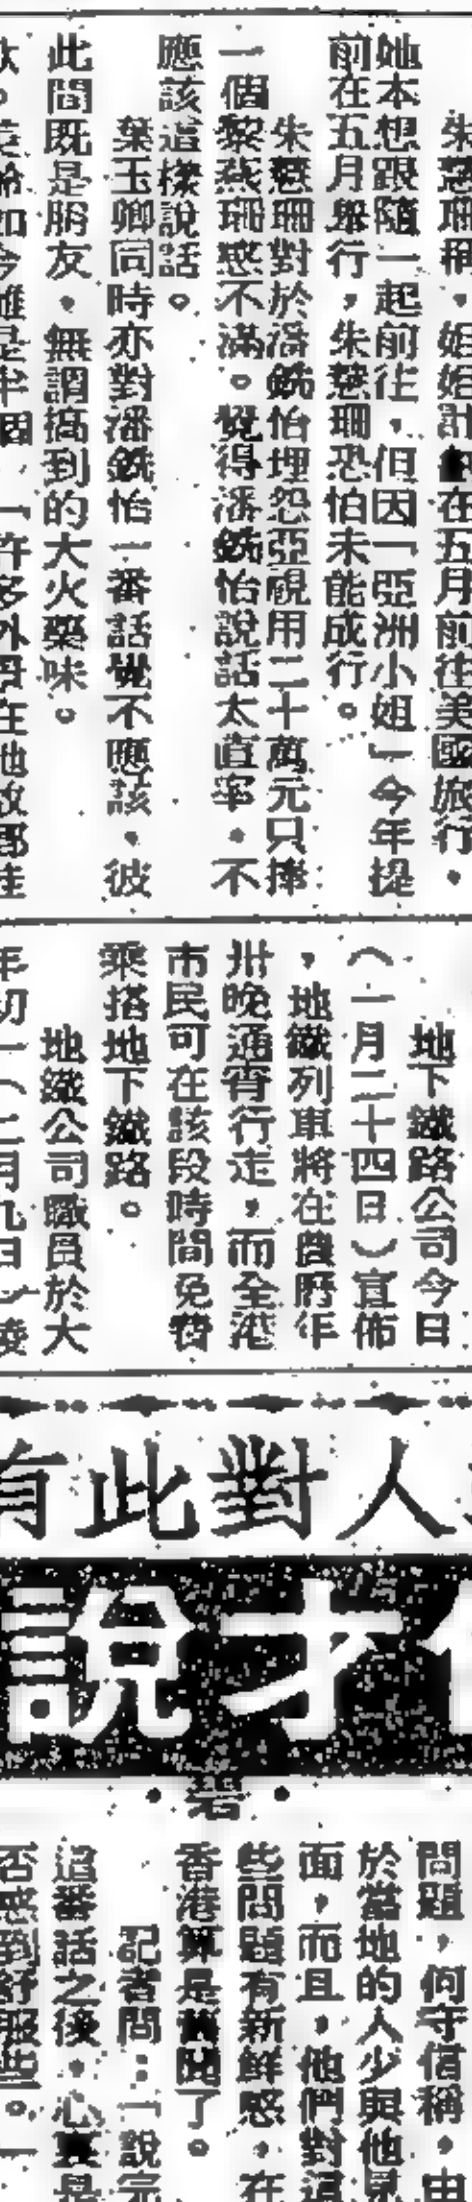 朱慧珊稱，姐姐計劃在五月前往美國旅行，
她本想跟隨一起前往，但因「亞洲小姐」今年提
前在五月舉行，朱慧珊恐怕未能成行。
朱慧珊對於潘銹怡埋怨亞視用二十萬元只捧
一個黎燕珊感不滿。覺得潘銹怡說話太直率，不
應該這樣說話。
葉玉卿同時亦對潘銹怡一番話覺不應該，彼
此間既是朋友，無謂搞到的大火藥味。
地下鐵路公司今日
（一月二十四日）宣佈
，地鐵列車將在農曆年
卅晚通宵行走，而全港
市民可在該段時間免費
乘搭地下鐵路。
地鐵公司職員於大
年初一（二月九日）凌
人對此有
才說
·碧·
問題，何守信稱，由
於當地的人少與他見
面，而且，他們對這
些問題有新鮮感，在
香港算是舊聞了。
記者問：「說完
這番話之後，心裏是
否感到舒服些。」